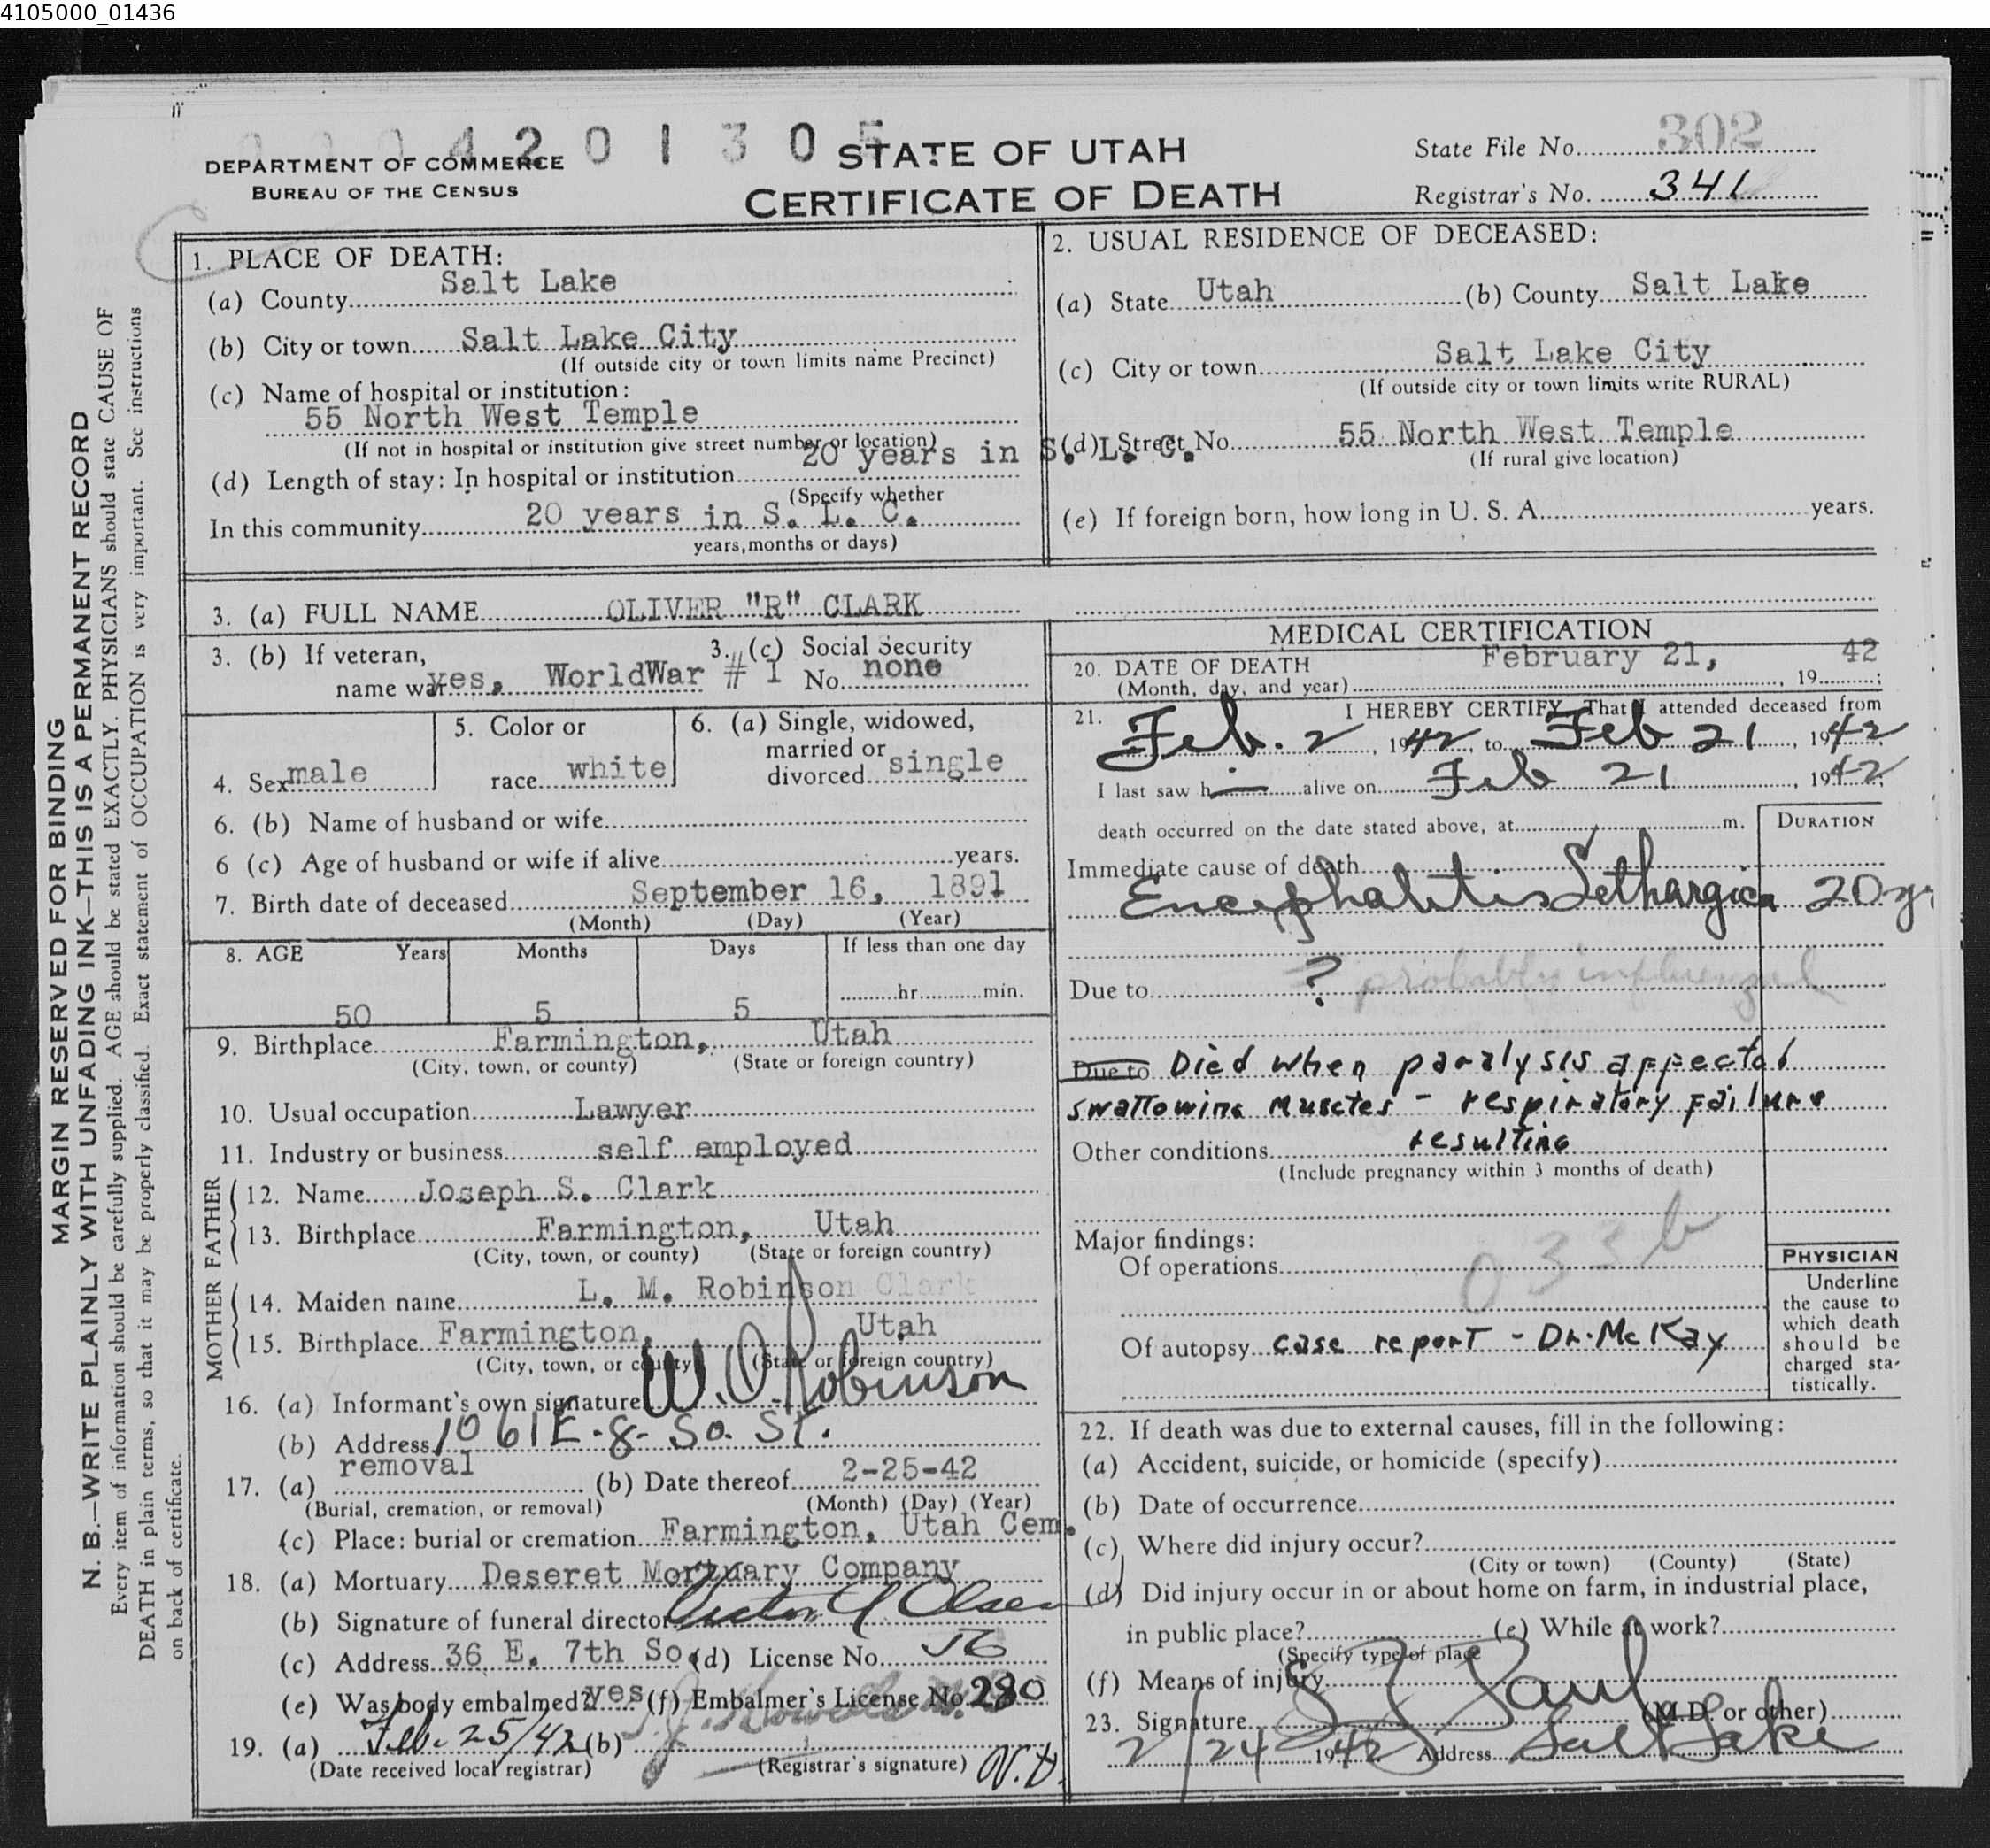 4105000_01436
0 0 0 4 2 0 1 3 0 5
DEPARTMENT OF COMMERCE
BUREAU OF THE CENSUS
STATE OF UTAH
CERTIFICATE OF DEATH
State File No. 302
Registrar's No. 341
MARGIN RESERVED FOR BINDING
N. B.—WRITE PLAINLY WITH UNFADING INK—THIS IS A PERMANENT RECORD
Every item of information should be carefully supplied. AGE should be stated EXACTLY. PHYSICIANS should state CAUSE OF
DEATH in plain terms, so that it may be properly classified. Exact statement of OCCUPATION is very important. See instructions
on back of certificate.
1. PLACE OF DEATH:
(a) County Salt Lake
(b) City or town Salt Lake City
(If outside city or town limits name Precinct)
(c) Name of hospital or institution:
55 North West Temple
(If not in hospital or institution give street number or location)
20 years in S. L. C.
(d) Length of stay: In hospital or institution
(Specify whether
In this community 20 years in S. L. C.
years, months or days)
2. USUAL RESIDENCE OF DECEASED:
(a) State Utah (b) County Salt Lake
(c) City or town Salt Lake City
(If outside city or town limits write RURAL)
(d) Street No. 55 North West Temple
(If rural give location)
(e) If foreign born, how long in U. S. A. years.
3. (a) FULL NAME OLIVER "R" CLARK
3. (b) If veteran,
name war yes, WorldWar # 1
3. (c) Social Security
No. none
4. Sex male
5. Color or
race white
6. (a) Single, widowed,
married or
divorced single
6. (b) Name of husband or wife
6 (c) Age of husband or wife if alive years.
7. Birth date of deceased September 16, 1891
(Month) (Day) (Year)
8. AGE Years Months Days If less than one day
hr. min.
50 5 5
9. Birthplace Farmington, Utah
(City, town, or county) (State or foreign country)
10. Usual occupation Lawyer
11. Industry or business self employed
FATHER
12. Name Joseph S. Clark
13. Birthplace Farmington, Utah
(City, town, or county) (State or foreign country)
MOTHER
14. Maiden name L. M. Robinson Clark
15. Birthplace Farmington, Utah
(City, town, or county) (State or foreign country)
16. (a) Informant's own signature W. O Robinson
(b) Address 1061 E. 8. So. St.
17. (a) removal (b) Date thereof 2-25-42
(Burial, cremation, or removal) (Month) (Day) (Year)
(c) Place: burial or cremation Farmington, Utah Cem.
18. (a) Mortuary Deseret Mortuary Company
(b) Signature of funeral director Olsen
(c) Address 36 E. 7th So (d) License No. 56
(e) Was body embalmed? yes (f) Embalmer's License No. 280
19. (a) Feb. 25/42 (b)
(Date received local registrar) (Registrar's signature)
MEDICAL CERTIFICATION
20. DATE OF DEATH February 21, 42
(Month, day, and year) , 19 ;
21. I HEREBY CERTIFY, That I attended deceased from
Feb. 2, 1942, to Feb 21, 1942,
I last saw h alive on Feb 21, 1942,
death occurred on the date stated above, at m.
DURATION
Immediate cause of death
Encephalitis Lethargica 20 yr
Due to ? probably influenzal
Due to Died when paralysis affected
swallowing muscles - respiratory failure
resulting
Other conditions
(Include pregnancy within 3 months of death)
Major findings:
Of operations
033b
Of autopsy case report - Dr. McKay
PHYSICIAN
Underline
the cause to
which death
should be
charged sta-
tistically.
22. If death was due to external causes, fill in the following:
(a) Accident, suicide, or homicide (specify)
(b) Date of occurrence
(c) Where did injury occur?
(City or town) (County) (State)
(d) Did injury occur in or about home on farm, in industrial place,
in public place? (e) While at work?
(Specify type of place
(f) Means of injury
23. Signature Paul (M.D. or other)
2/24 1942 Address Salt Lake